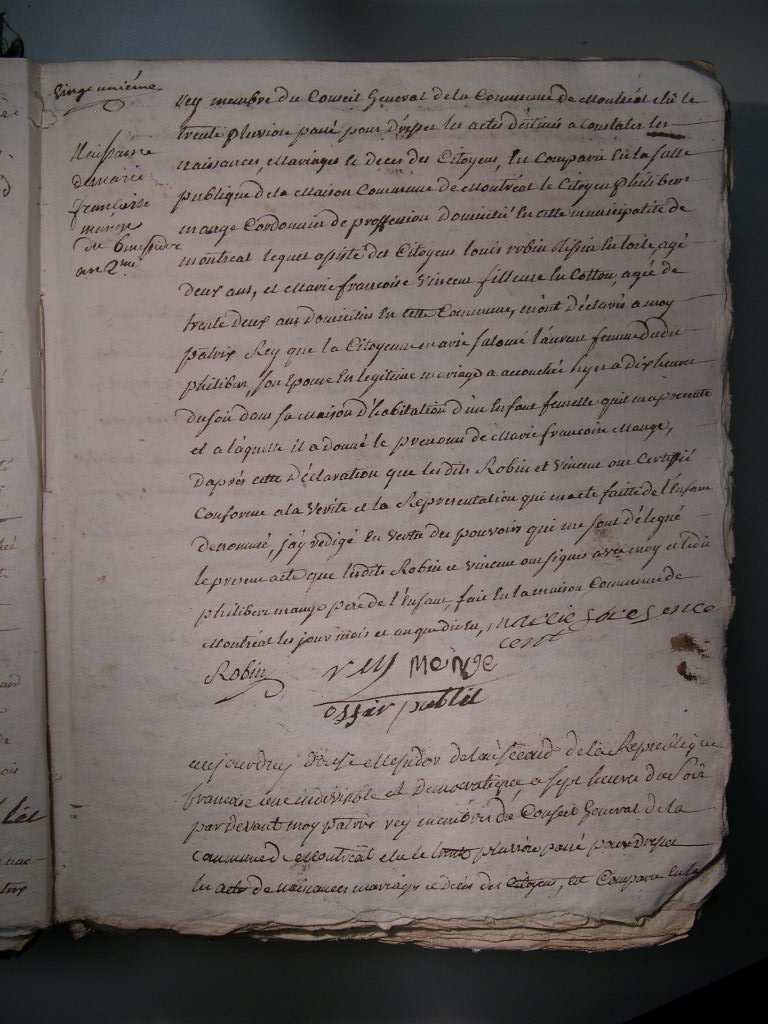 vingt unième
Naissance
de marie
françoise
mange
du 6 messidor
an 2me
rey membre du Conseil General de la Commune de Montréal élu le
trente pluviose passé pour dresser les actes destinés a Constater les
naissances, Mariages et Deces des Citoyens, Est Comparu En la salle
publique de la Maison Commune de Montréal le Citoyen philibert
mange Cordonnier de proffession domicilié En cette municipalité de
montréal lequel assisté des Citoyens Louis robin tissier En toile, agé
deux ans, et Marie francoise Vincent fileuse En Cotton, agée de
trente deux ans domiciliés En cette Commune, m'ont déclaré a moy
patrix Rey que la Citoyenne marie salomé laurent femme dudit
philibert, son Epouse En legitime mariage a accouchée hyer a dix heures
du soir dans sa Maison d'habitation d'un Enfant femelle qu'il m'a presenté
et a laquelle il a donné le prenom de Marie francoise Mange,
D'aprés cette déclaration que lesdits Robin et Vincent ont Certiffié
Conforme a la Verité et la Representation qui m'a eté faitte de l'Enfant
denommé, j'ay rédigé En Vertu des pouvoirs qui me sont délegué
le present acte que lesdits Robin et vincent ont signés avec moy et ledit
philibert mange pere de l'Enfant, fait En la maison Commune de
Montréal les jour mois et an que dessus,
Robin rey Menge
offier public
aujourdhuy messidor de la République
francaise une indivisible et Democratique, a sept heures du soir
par devant moy patrix rey membre du Conseil General de la
Commune de Montréal elu le trente pluviose passé pour dresser
les actes de naissances mariages et déces des Citoyens, Est Comparu En la